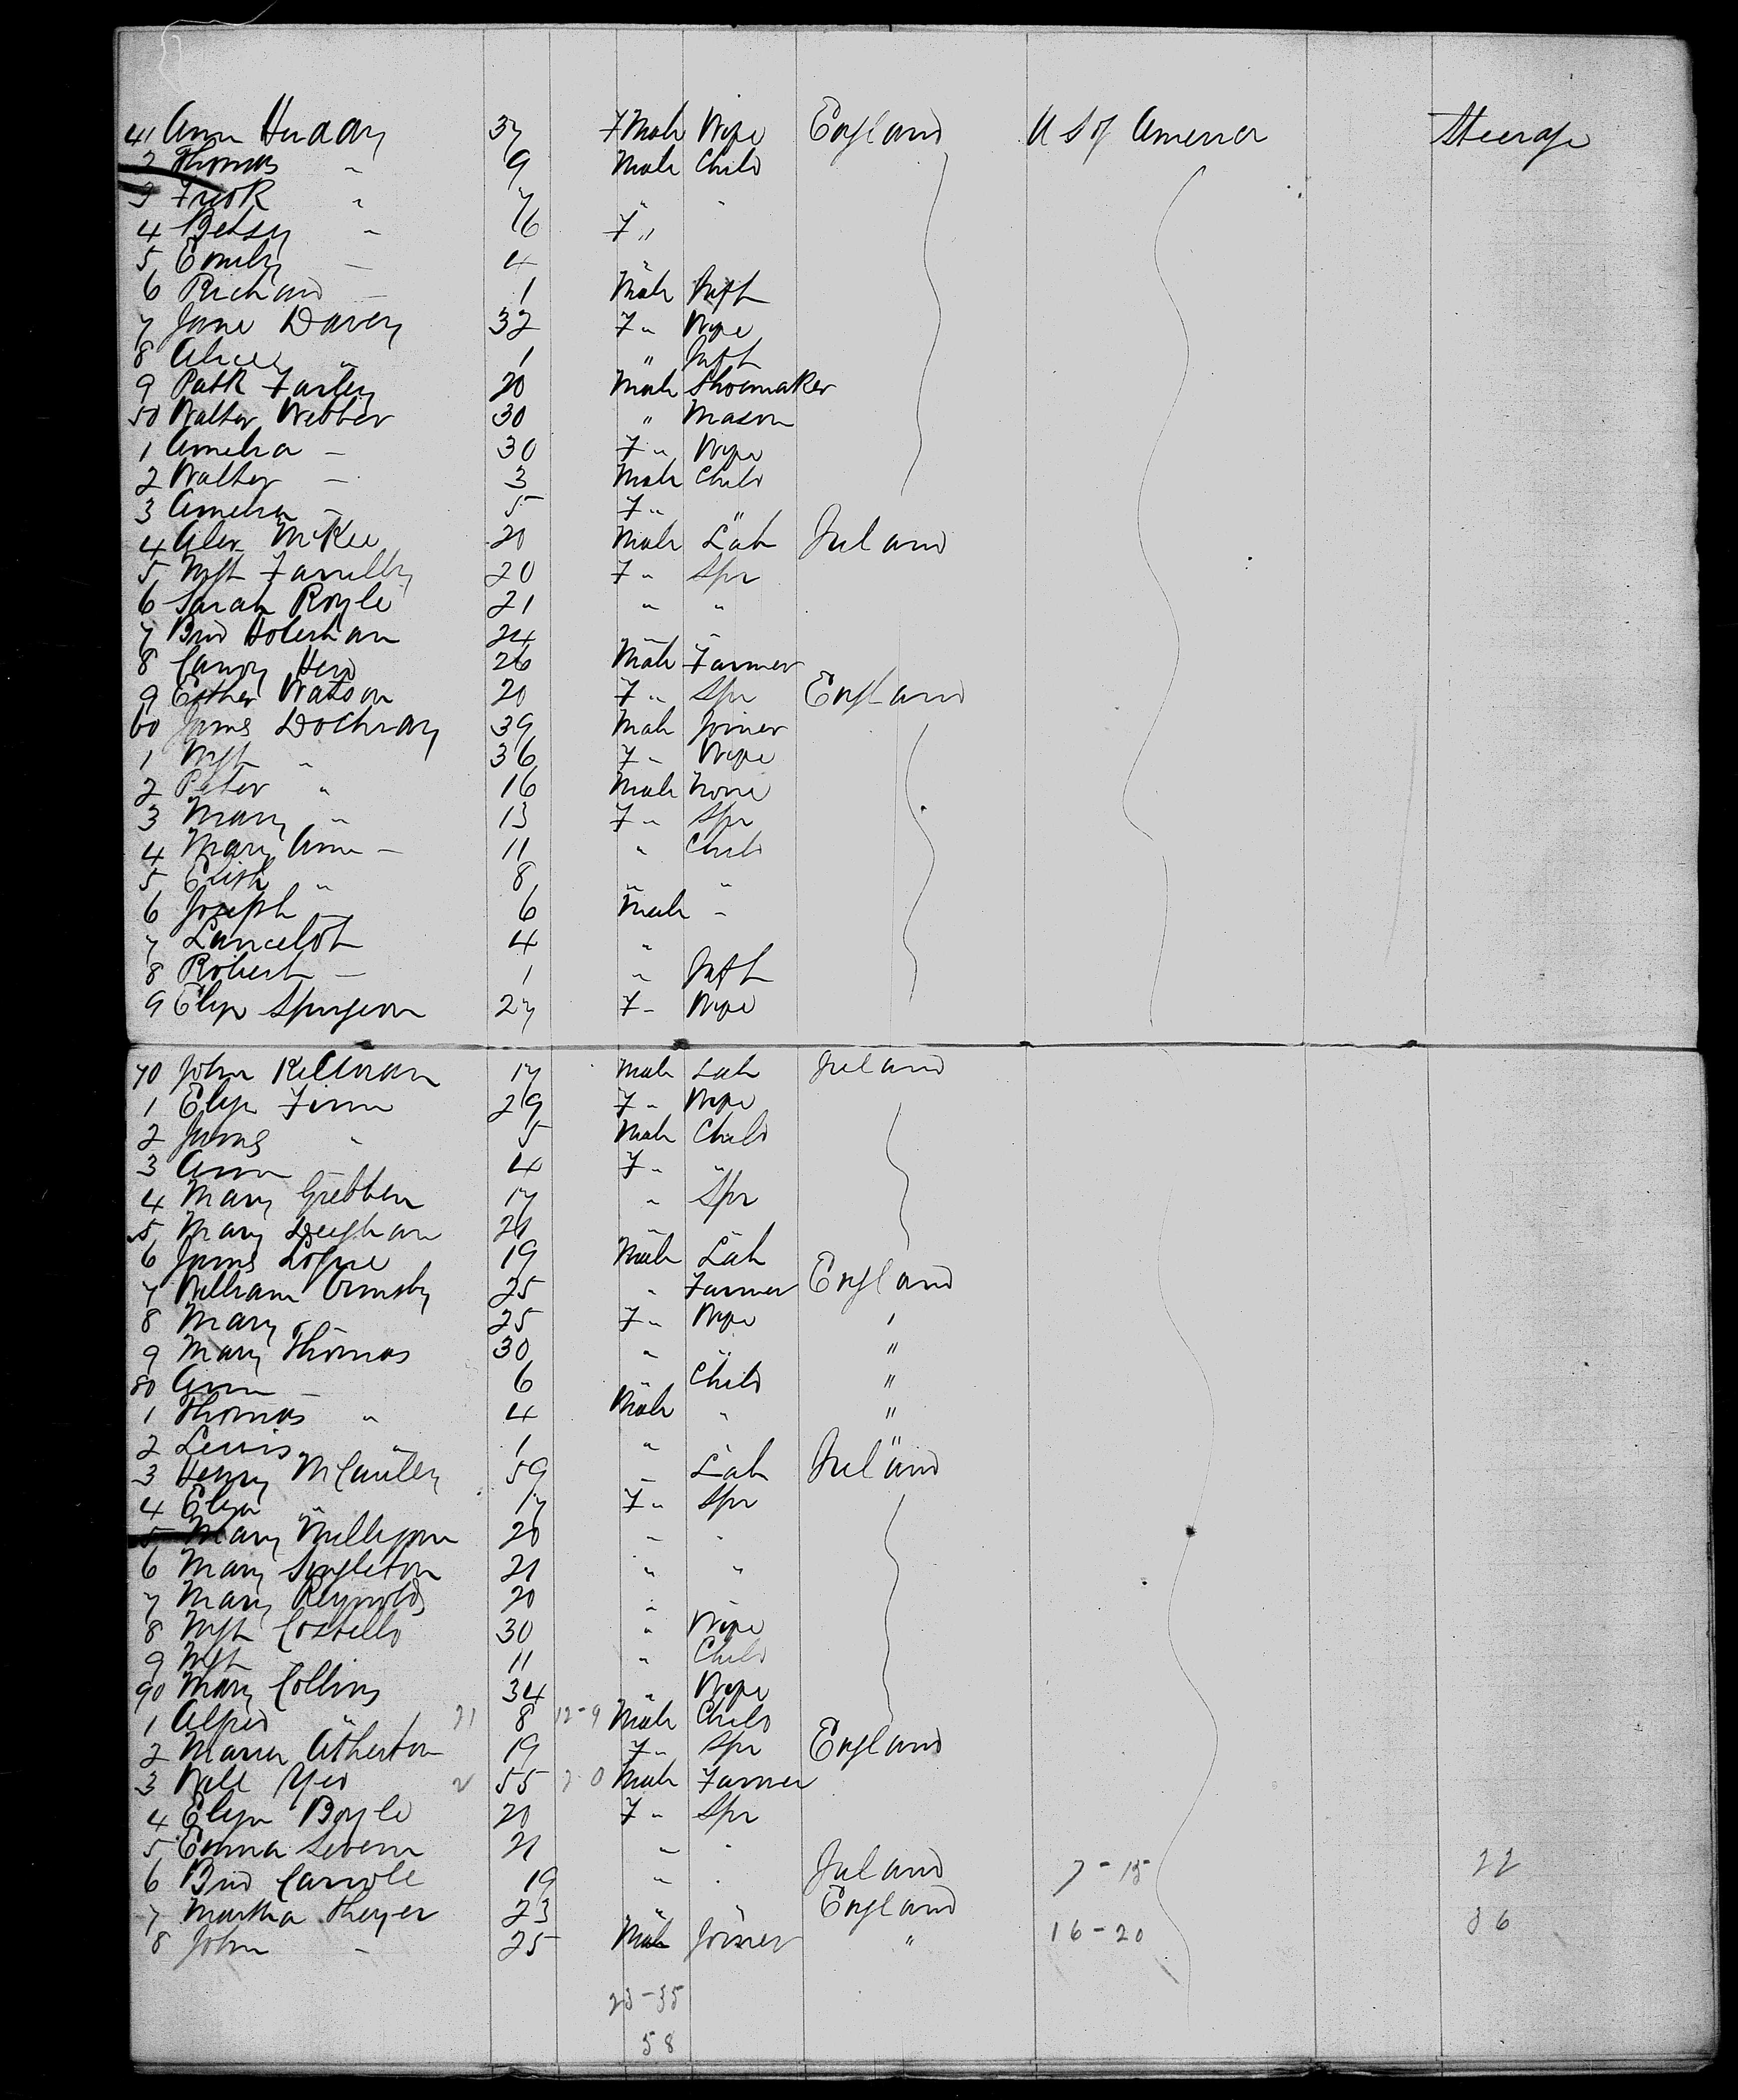 41 Ann Hudday 37 FMale Wife England U S of America Steerage
2 Thomas " 9 Male Child
3 Fredk " 7 " "
4 Betsy " 6 F "
5 Emily — 4 "
6 Richard — 1 Male Inft
7 Jane Davey 32 F " Wife
8 Alice " 1 " Inft
9 Patk Farley 20 Male Shoemaker
50 Walter Webber 30 " Mason
1 Amelia — 30 F " Wife
2 Walter — 3 Male Child
3 Amelia — 5 F " "
4 Alex McKee 20 Male Lab Ireland
5 Mgt Farrelly 20 F " Spr
6 Sarah Royle 21 " "
7 Brid Holerhan 24 " "
8 Candy Herd 26 Male Farmer
9 Esther Watson 20 F " Spr England
60 James Dochray 39 Male Joiner
1 Mgt " 36 F " Wife
2 Peter " 16 Male None
3 Mary " 13 F " Spr
4 Mary Ann — 11 " Child
5 Edith " 8 " "
6 Joseph — 6 Male "
7 Lancelot 4 "
8 Robert — 1 " Inft
9 Eliza Spurgeon 27 F " Wife
70 John Killoran 17 Male Lab Ireland
1 Eliza Finn 29 F " Wife
2 James " 5 Male Child
3 Ann — 4 F " "
4 Mary Gribben 17 " Spr
5 Mary Deighan 21 " "
6 James Logue 19 Male Lab
7 William Ormsby 25 " Farmer England
8 Mary — 25 F " Wife "
9 Mary Thomas 30 " " "
80 Ann — 6 " Child "
1 Thomas " 4 Male " "
2 Lewis " 1 " "
3 Henry McCauley 59 — Lab Ireland
4 Eliza " 17 F " Spr
5 Mary Milligan 20 " "
6 Mary Singleton 21 " "
7 Mary Reynolds 20 "
8 Mgt Costello 30 " Wife
9 Mgt — 11 " Child
90 Mary Collins 34 " Wife
1 Alfred " 21 8 12-9 Male Child
2 Maria Atherton 19 F " Spr England
3 Will Yeo 2 55 2 0 Male Farmer
4 Eliza Boyle 20 F " Spr
5 Emma Severn 21 " "
6 Brid Carroll 19 " " Ireland 7-15 22
7 Martha Thayer 23 " " England
8 John — 25 Male Joiner " 16-20 36
23-35
58